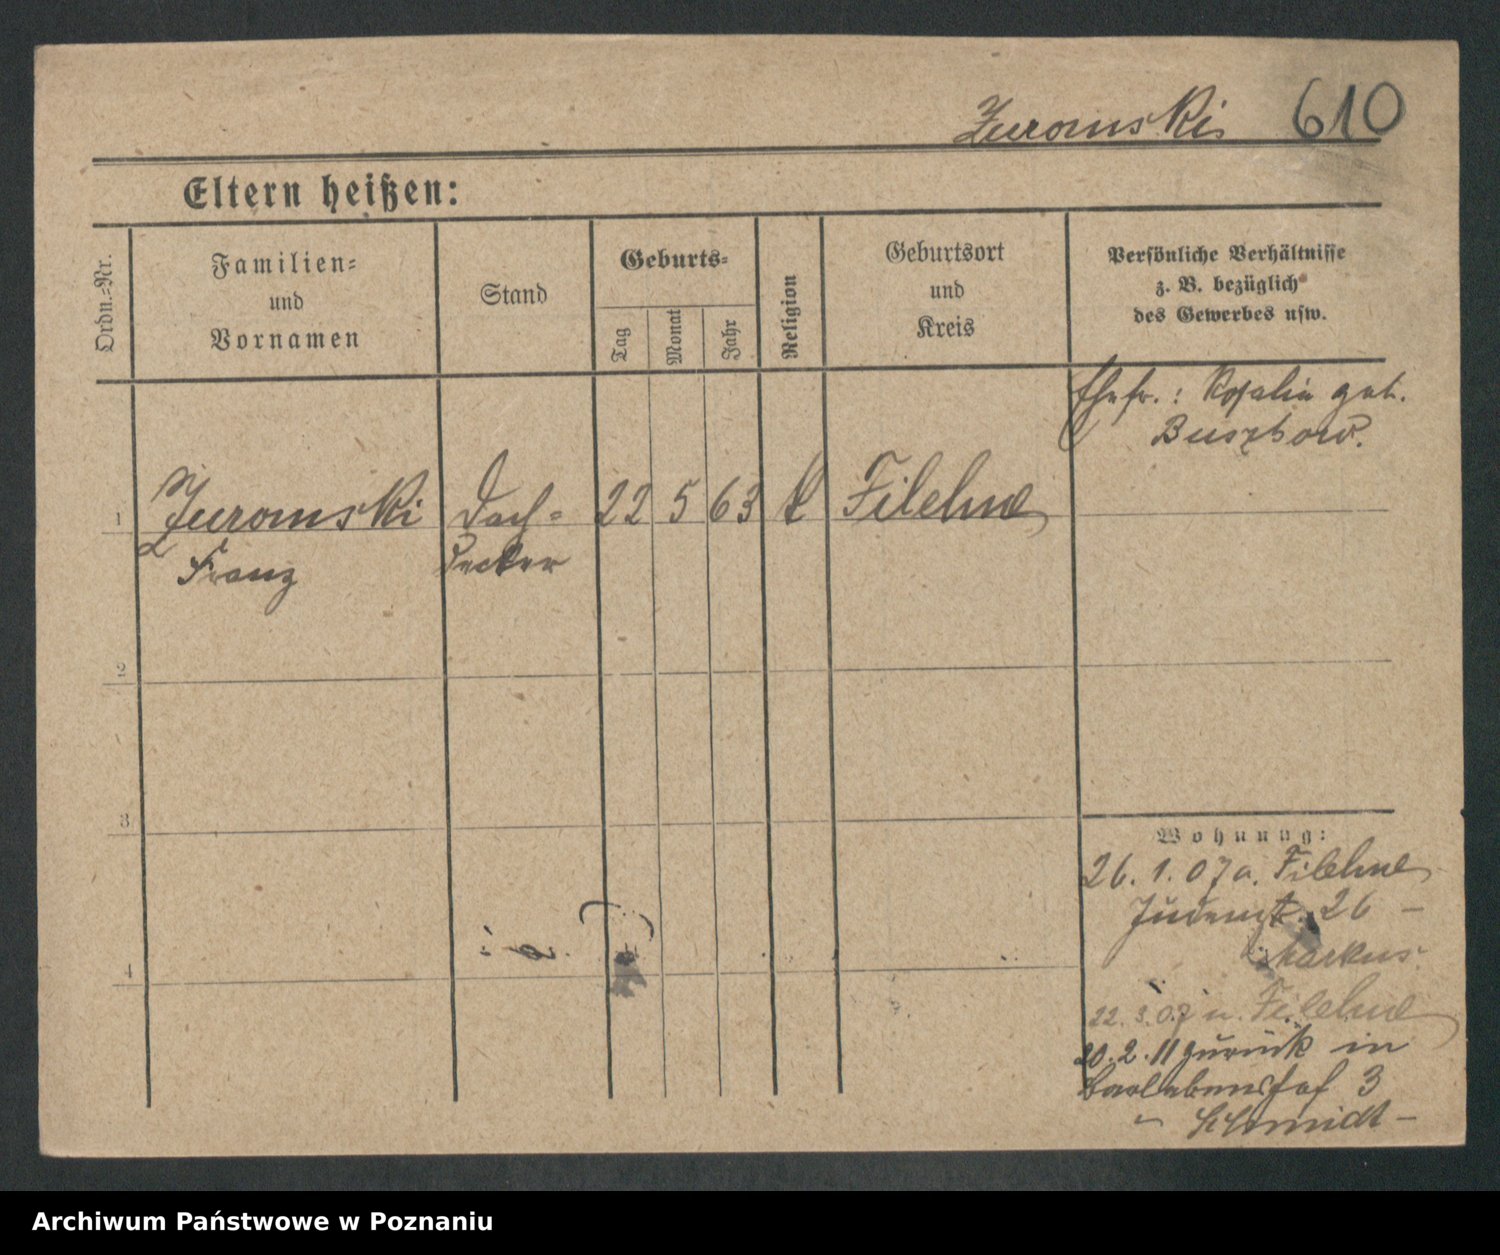 Zuromski 610
Eltern heißen:
Ordn.-Nr.
Familien-
und
Vornamen
Stand
Geburts-
Tag
Monat
Jahr
Religion
Geburtsort
und
Kreis
Persönliche Verhältnisse
z. B. bezüglich
des Gewerbes usw.
Ehefr.: Rosalie geb.
1 Zuromski Dach- 22 5 63 k Filehne
Franz decker
2
3
4
Wohnung:
26. 1. 07 a. Filehne
Judenstr. 26 –
Markus
22. 3. 07 n. Filehne
20. 2. 11 zurück in
3
Schmidt –
Archiwum Państwowe w Poznaniu